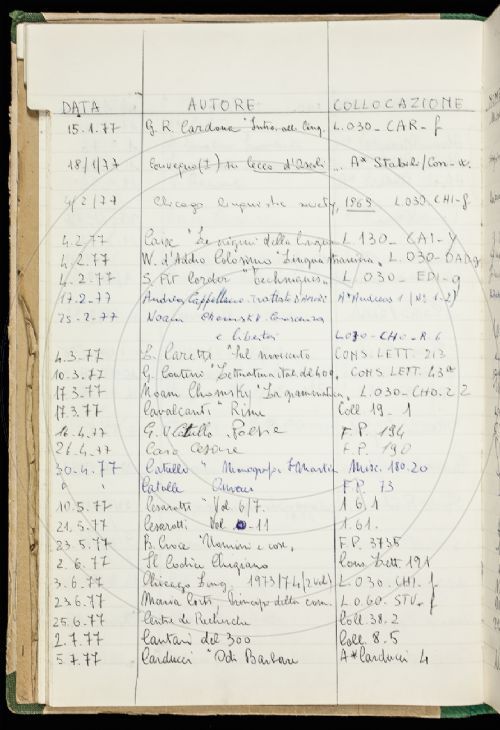 DATA AUTORE COLLOCAZIONE
15.1.77 G. R. Cardona "Introd. alla ling. L.030_ CAR_f
18/1/77 Convegno (I) su Cecco d'Ascoli ... A* Stabili/Con-
4/2/77 Chicago linguistic society, 1969 L.030_CHI-g
4.2.77 "Le origini della lingua L 130_ CAI-y
4.2.77 W. d'Addio Colosimo "Lingua straniera, L.030-DAD
4.2.77 S. Pit Corder "Techniques L.030_ EDI-g
17.2-77 Andrea Cappellano Trattato d'amore A* Andreas 1 (N° 1-2)
25.2-77 Noam Chomsky. Conoscenza
e libertà L.030-CHO-R 6
4.3.77 L. Caretti "Sul novecento CONS. LETT. 213
10.3.77 G. Contini "Letteratura ital. del 400, CONS. LETT. 43a
17.3.77 Noam Chomsky "La grammatica, L.030-CHO-2 2
17.3.77 Cavalcanti "Rime Coll 19-1
16.4.77 G. V Catullo Poesie F.P. 194
26.4.77 Caro Cesare F.P. 190
30.4.77 Catullo " Monografia Misc. 180.20
" " Catullo F.P. 73
10.5.77 Cesarotti "Vol. 6/7. 1 6 1
21.5.77 Cesarotti Vol -11 1.61.
23.5.77 B. Croce "Uomini e cose, F.P. 3735
2.6.77 Il Codice Chigiano Cons Lett 191
3.6.77 Chicago Ling. 1973/74/2 vol) L.030.CHI.f
23.6.77 Maria Corti, Principi della com. L.060-STU-f
25.6.77 Centre de Recherche Coll. 38.2
2.7.77 Cantari del 300 Coll. 8.5
5.7.77 Carducci "Odi Barbare A*Carducci 4